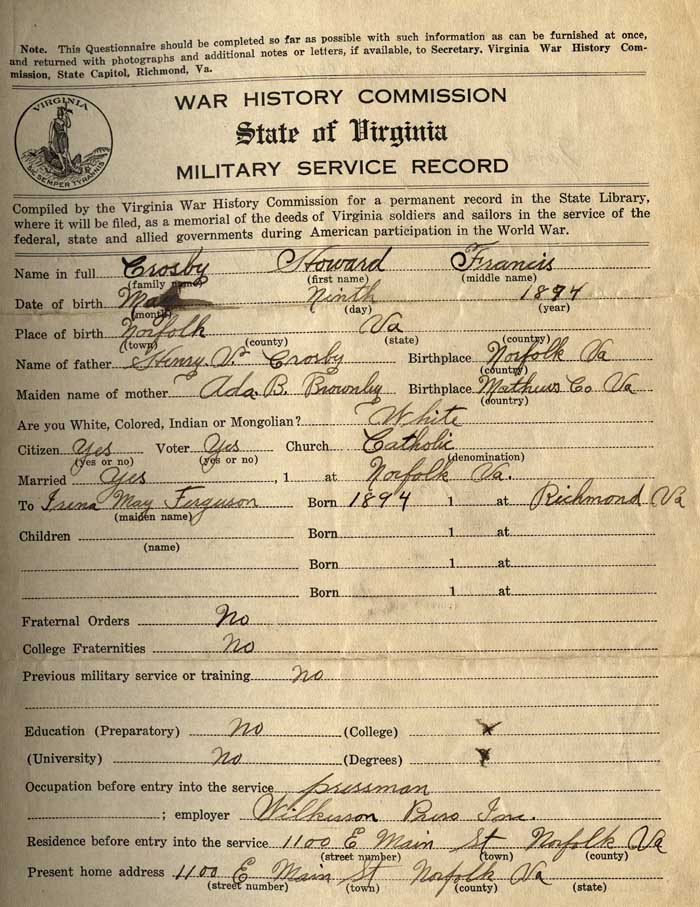 Note. This Questionnaire should be completed so far as possible with such information as can be furnished at once,
and returned with photographs and additional notes or letters, if available, to Secretary. Virginia War History Com-
mission, State Capitol, Richmond, Va.
VIRGINIA
SIC SEMPER TYRANNIS
WAR HISTORY COMMISSION
State of Virginia
MILITARY SERVICE RECORD
Compiled by the Virginia War History Commission for a permanent record in the State Library,
where it will be filed, as a memorial of the deeds of Virginia soldiers and sailors in the service of the
federal, state and allied governments during American participation in the World War.
Name in full Crosby Howard Francis
(family name) (first name) (middle name)
Date of birth Ninth 1894
(month) (day) (year)
Place of birth Norfolk Va
(town) (county) (state) (country)
Name of father Henry V. Crosby Birthplace Norfolk Va
(country)
Maiden name of mother Ada B. Brownley Birthplace Mathews Co Va
(country)
Are you White, Colored, Indian or Mongolian? White
Citizen Yes Voter Yes Church Catholic
(yes or no) (yes or no) (denomination)
Married Yes , 1 at Norfolk Va.
To Irena May Ferguson Born 1894 1 at Richmond Va
(maiden name)
Children Born 1 at
(name)
Born 1 at
Born 1 at
Fraternal Orders No
College Fraternities No
Previous military service or training no
Education (Preparatory) No (College) x
(University) No (Degrees) x
Occupation before entry into the service pressman
; employer Inc.
Residence before entry into the service 1100 E Main St Norfolk Va
(street number) (town) (county)
Present home address 1100 E Main St Norfolk Va
(street number) (town) (county) (state)